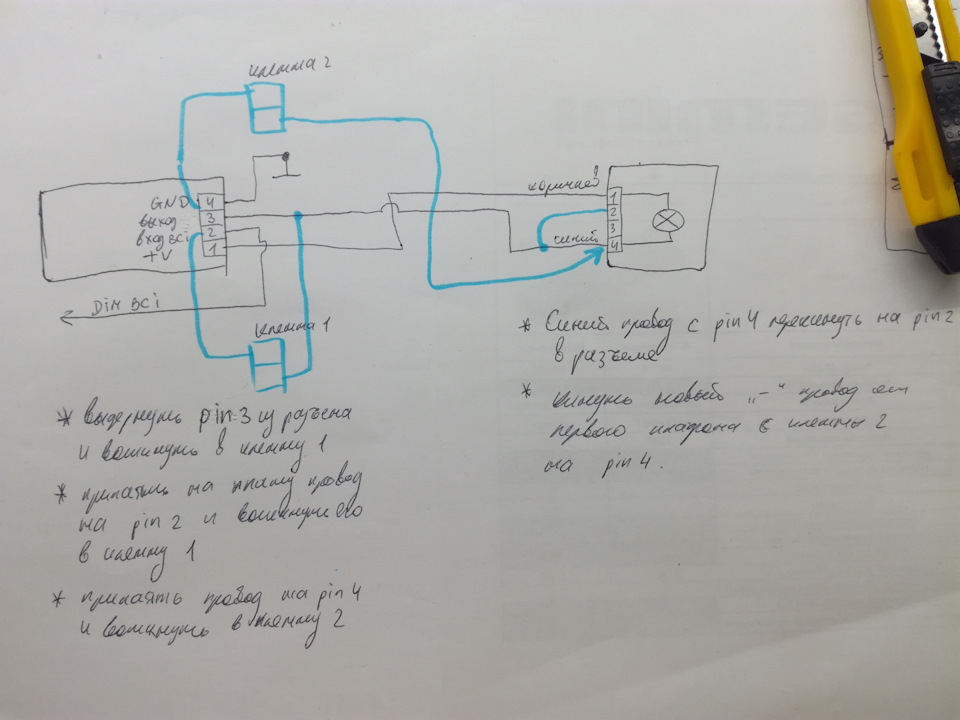 клемма 2
коричнев
GND 4
выход 3
вход BCI 2
+V 1
1
2
3
4
синий
DIM BCI
клемма 1
* выдернуть pin-3 из разъема
и воткнуть в клемму 1
* припаять на плату провод
на pin 2 и воткнуть его
в клемму 1
* припаять провод на pin 4
и воткнуть в клемму 2
* Синий провод с pin 4 перекинуть на pin 2
в разъеме
* кинуть новый „-“ провод от
первого плафона с клеммы 2
на pin 4.